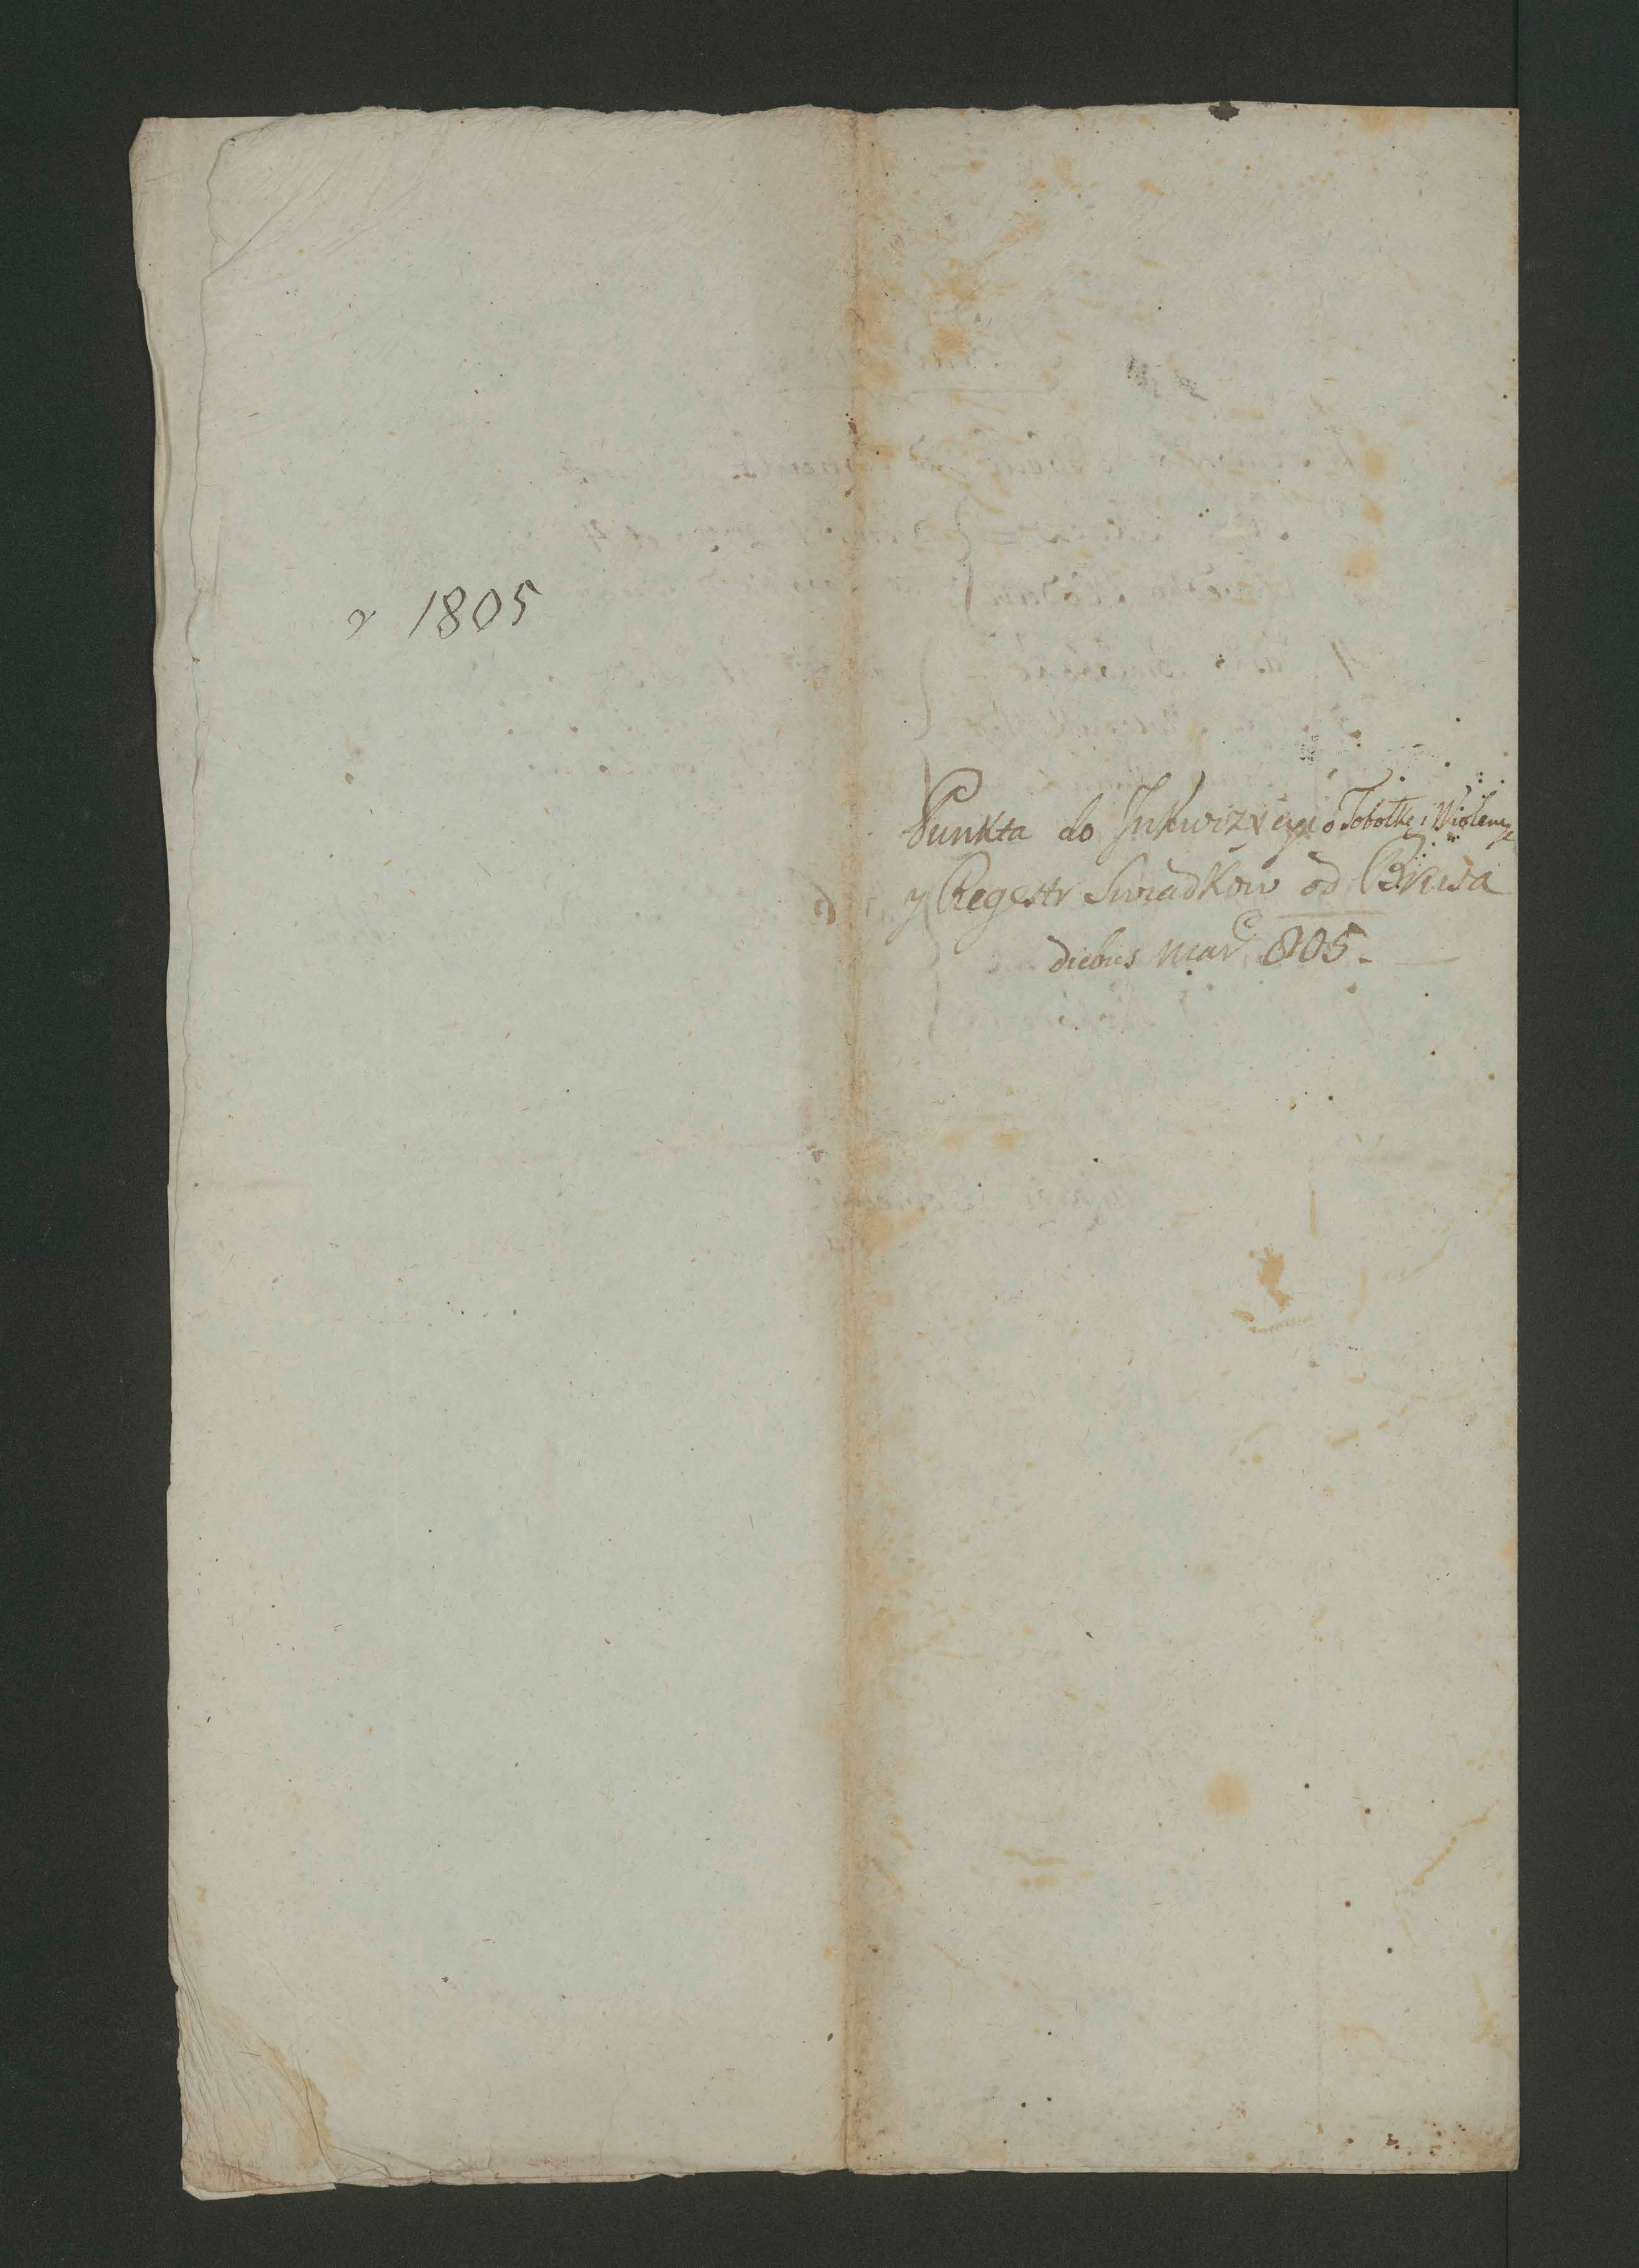 r 1805
Punkta do Inkwizycyi o Tobołkę i Wiolencye
y Regestr Swiadkow od Brusa
diebus Mar. 805.